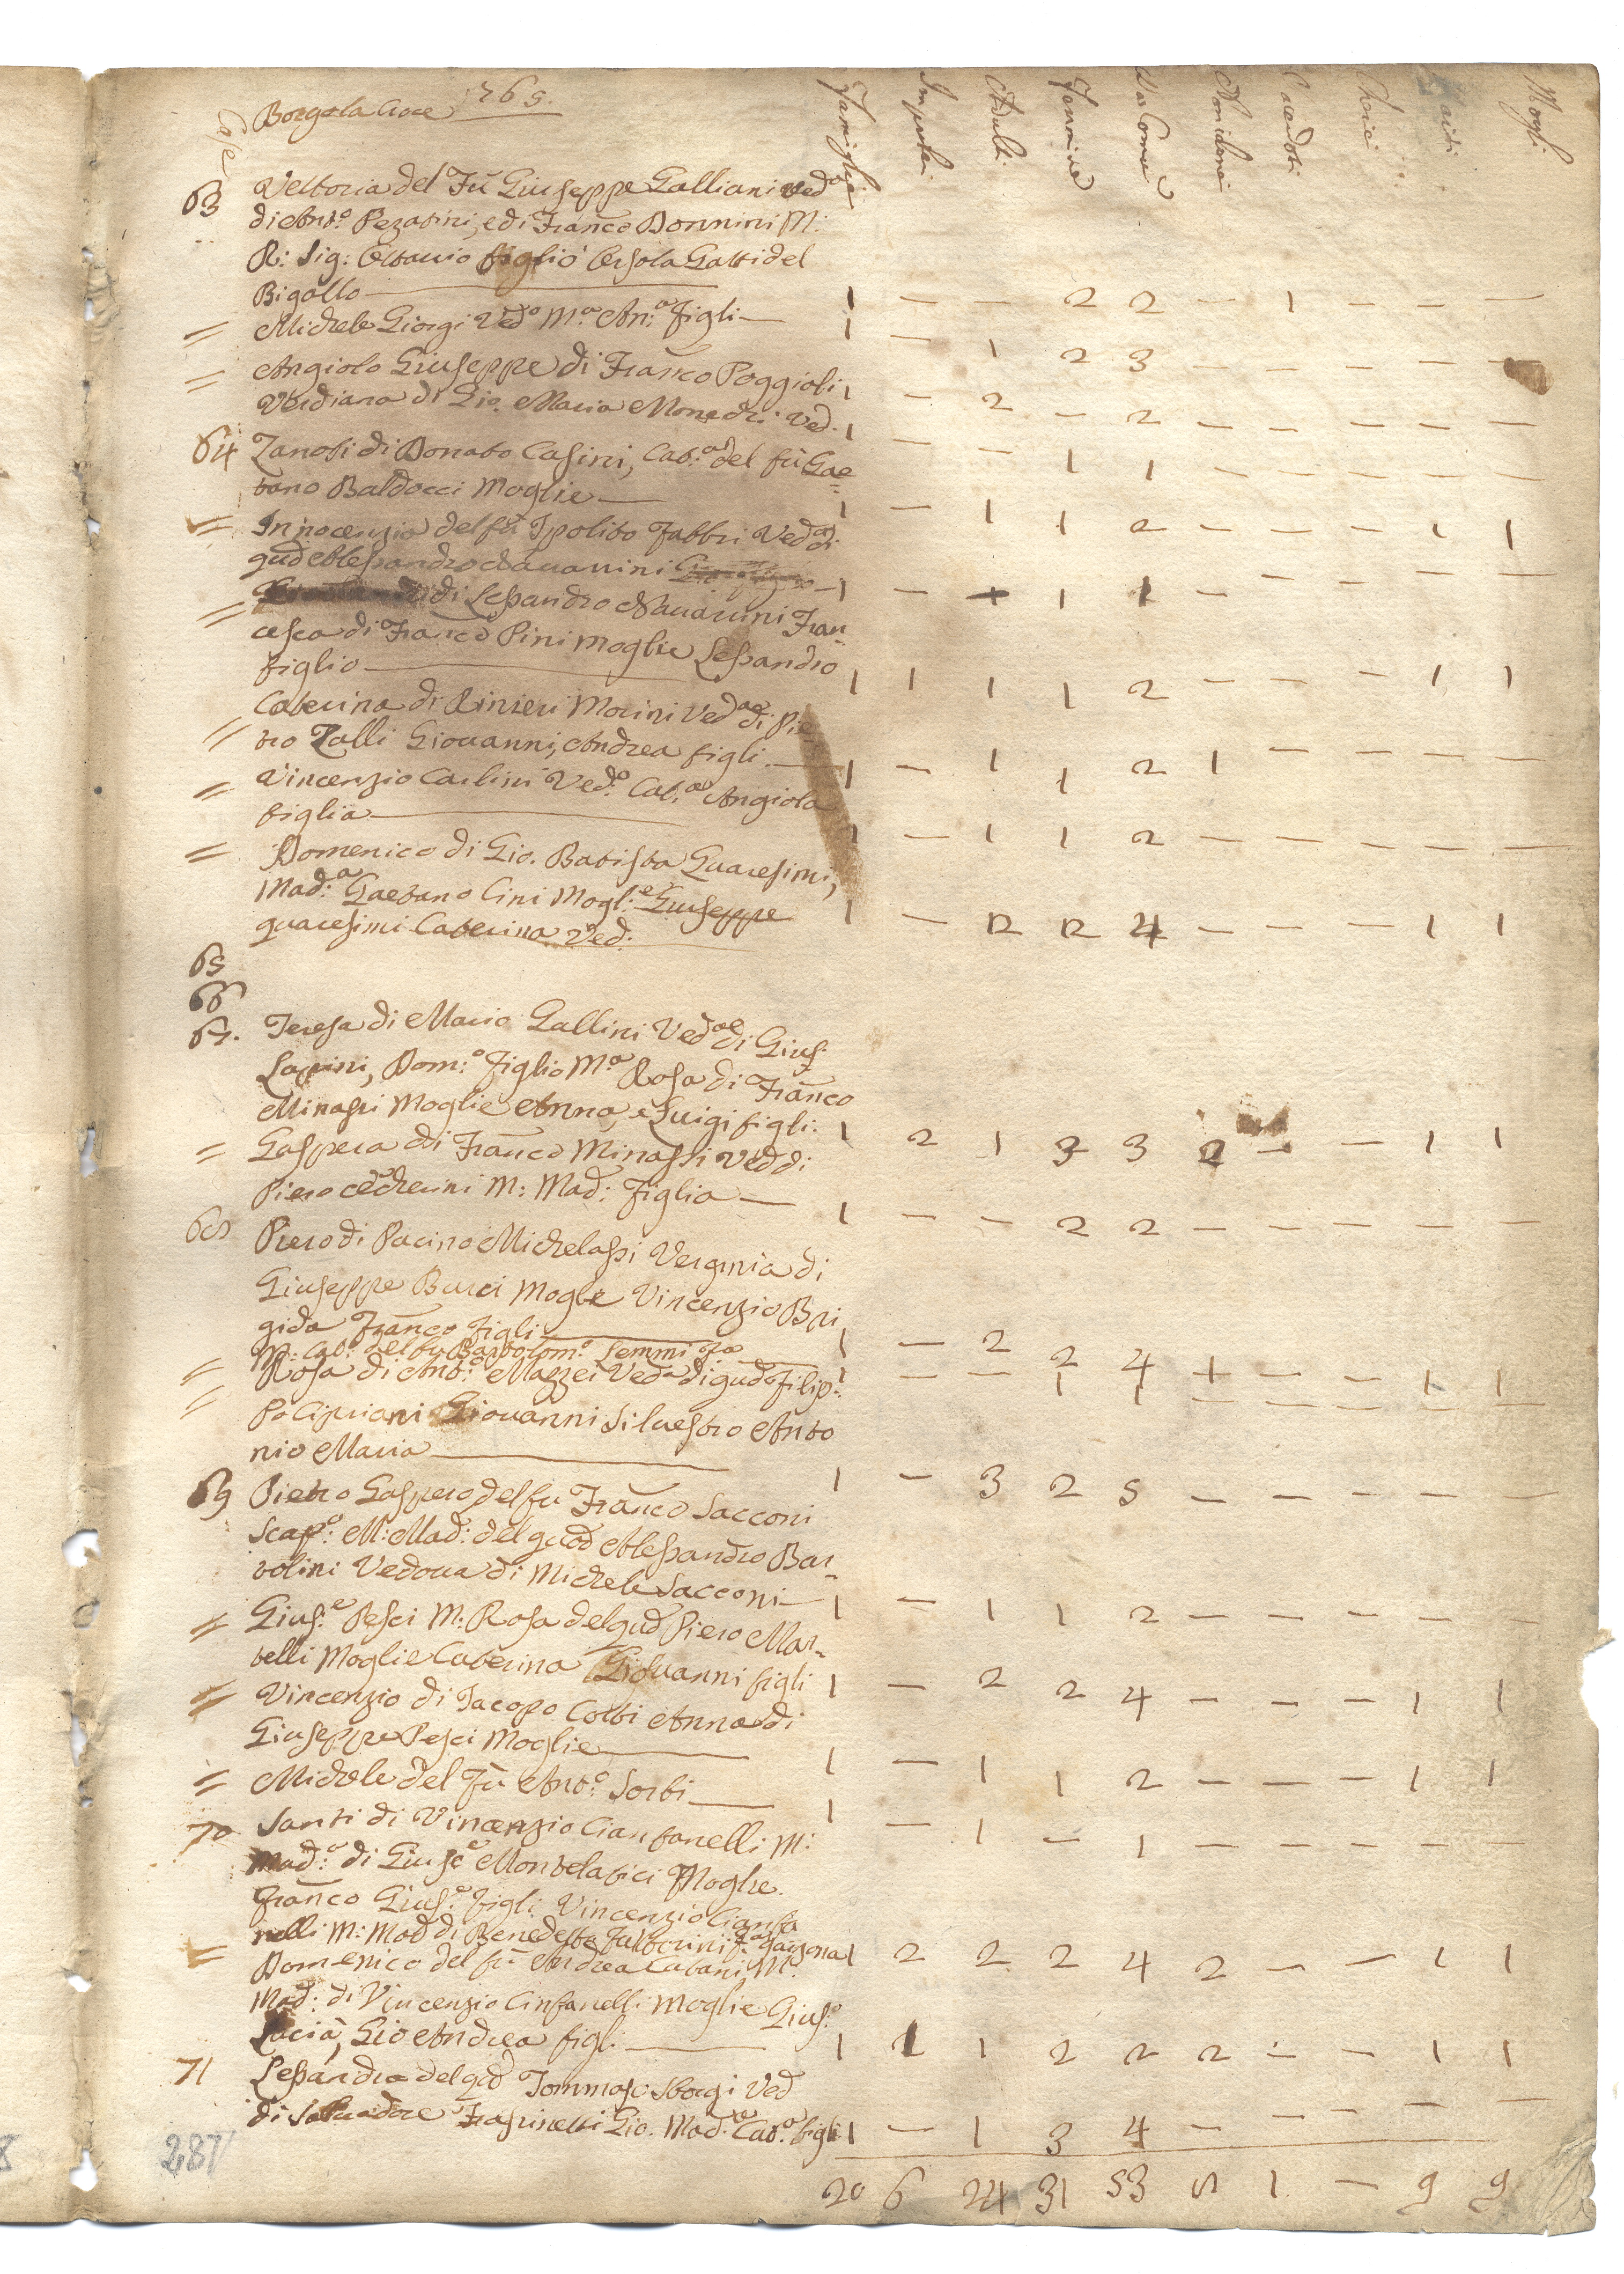 Case Borgo la Croce 1765. Famiglie Impuberi Adulti Femmine Comunic. Sacerdoti Cherici Mogli
63 Vettoria del Fù Giuseppe Galliani Ved.ª
di Ant.º Pezatini, e di Franco Donnini M:
R: Sig: Ottavio figlio Orsola Gatti del
Bigallo — 1 — — 2 2 — 1 — — —
= Michele Giorgi Ved.º M.ª An.ª figli — 1 — 1 2 3 — — — — —
= Angiolo Giuseppe di Franco Poggioli 1 — 2 — 2 — — — — —
Verdiana di Gio. Maria Ved. 1 — — 1 1 — — — — —
64 Zanobi di Donato Casini, Cat.ª del fù Gae=
tano Baldocci Moglie — 1 — 1 1 2 — — — 1 1
= Innocenzia del fù Ipolito Fabbri Ved.ª di
qud Alessandro Navarrini — 1 — + 1 1 — — — — —
= di Lessandro Navarrini Fran=
cesca di Franco Pini Moglie Lessandro
figlio — 1 1 1 1 2 — — — 1 1
= Caterina di Rinieri Morini Ved.ª di Pie
tro Zalli Giovanni, Andrea figli. — 1 — 1 1 2 1 — — — —
= Vincenzio Carlini Ved.º Cat.ª Angiola
figlia — 1 — 1 1 2 — — — — —
= Domenico di Gio. Batista Quaresimi,
Mad:ª Gaetano Cini Mogl:e Giuseppe
quaresimi Caterina Ved. 1 — 2 2 4 — — — 1 1
65
66
67. Teresa di Mario Gallini Ved.ª di Gius:
Lapini, Dom:º Figlio M.ª Rosa di Franco
Minassi Moglie Anna, e Luigi figli: 1 2 1 3 3 2 — — 1 1
= Gaspera di Franco Minassi Ved di
Piero M: Mad: Figlia — 1 — — 2 2 — — — — —
68 Piero di Pacino Michelassi Verginia di
Giuseppe Burci Moglie Vincenzio Bri
gida Franco figli — 1 — 2 2 4 + — — 1 1
= M: Cat: del fu Bartolom.º Lemmi 1 — — 1 1 — — — — —
= Rosa di Ant:º Mazzei Ved.ª di qud Filip=
po Cipriani Giovanni Silvestro Anto
nio Maria — 1 — 3 2 5 — — — — —
69 Pietro Gaspero del fu Franco Sacconi
Scap:º M: Mad: del qud Alessandro Bar=
tolini Vedova di Michele Sacconi — 1 — 1 1 2 — — — — —
= Gius:e Pesci M: Rosa del qud Piero Mar=
telli Moglie Caterina Giovanni figli 1 — 2 2 4 — — — 1 1
= Vincenzio di Jacopo Cotti Anna di
Giuseppe Pesci Moglie — 1 — 1 1 2 — — — 1 1
= Michele del Fù Ant:º Sorbi — 1 — 1 — 1 — — — — —
70 Santi di Vincenzio Cianfanelli M:
Mad:ª di Giuse Montelatici Moglie.
Franco Gius:e figli. Vincenzio Cianfa
nelli M: Mad di Benedetto garzona 1 2 2 2 4 2 — — 1 1
= Domenico del fù Andrea Catani M:
Mad: di Vincenzio Cinfanelli Moglie Gius:e
Lucia, Gio Andrea figli — 1 1 1 2 2 2 — — 1 1
71 Lessandra del qd Tommaso Sborgi Ved
di Salvadore Frassinetti Gio. Mad.ª Cat.ª figli 1 — 1 3 4 — — — — —
287 20 6 24 31 53 5 1 — 9 9